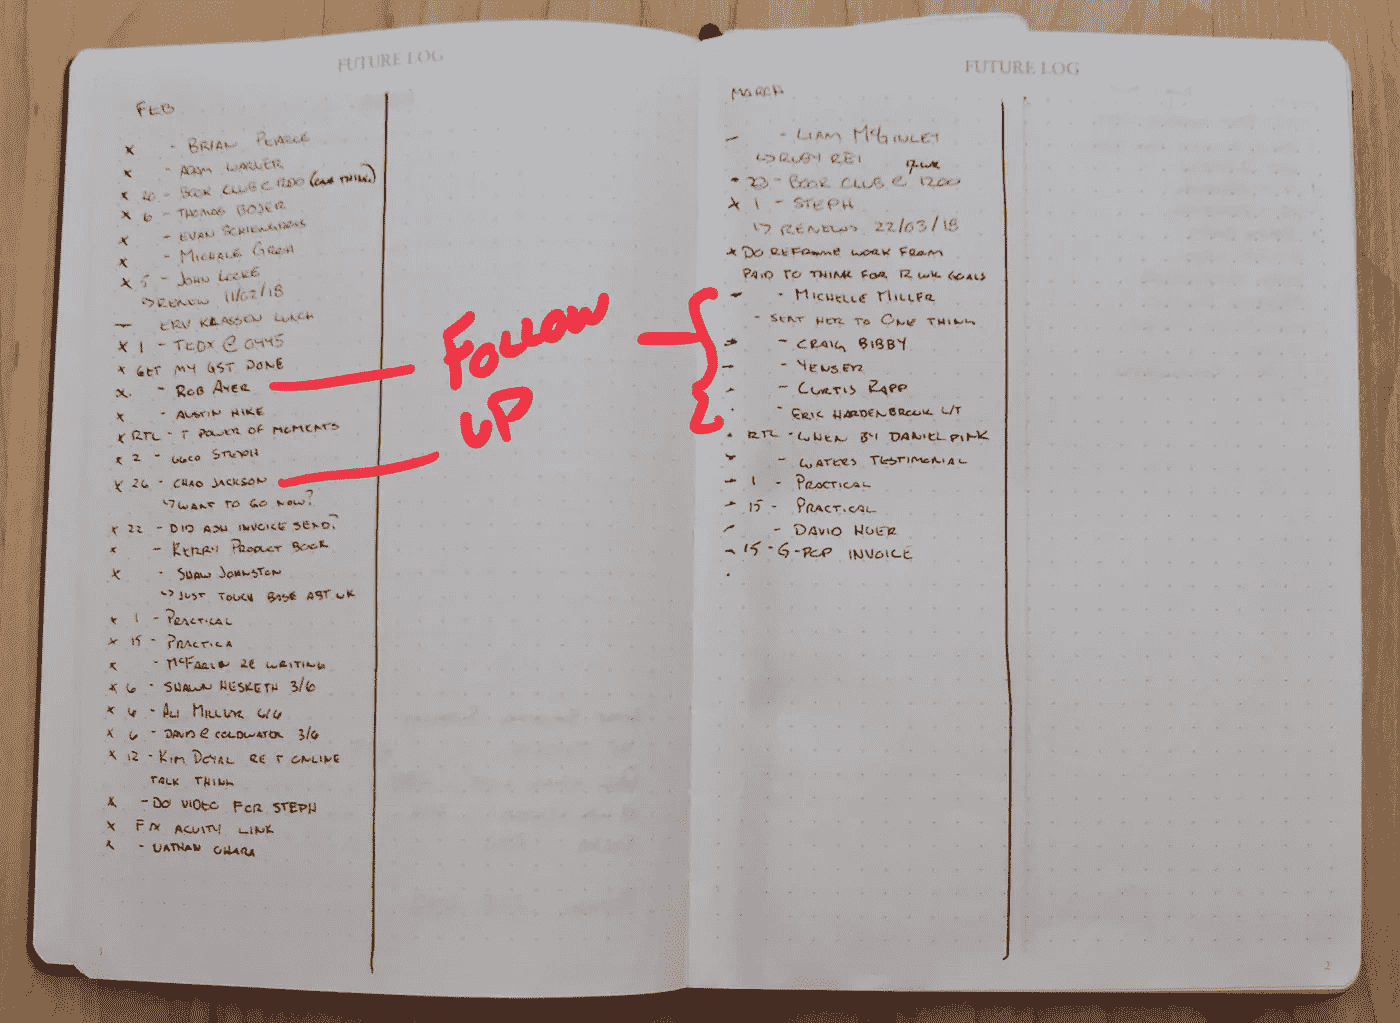 FUTURE LOG
FEB
x - BRIAN PEARCE
x - ADAM WARNER
x 20 - BOOK CLUB @ 1200 (ONE THING)
x 6 - THOMAS BOJER
x - EVAN
x - MICHALE GROH
x 5 - JOHN LOCKE
↳ RENEW 11/02/18
— ERV KLASSEN LUNCH
x 1 - TEDX @ 0445
x GET MY GST DONE
x - ROB AYER
x - AUSTIN HIKE
x RTL - T POWER OF MOMENTS
x 2 - STEPH
x 26 - CHAD JACKSON
↳ WANT TO GO NOW?
x 22 - DID ADN INVOICE SEND?
x - KERRY PRODUCT BOOK
x - SHAW JOHNSTON
↳ JUST TOUCH BASE ABT WK
x 1 - PRACTICAL
x 15 - PRACTICA
x - MCFARLIN RE WRITING
x 6 - SHAWN HESKETH 3/6
x 6 - ALI MILLER 6/6
x 6 - DAVID @ COLDWATER 3/6
x 12 - KIM DOYAL RE T ONLINE
TALK THINK
x - DO VIDEO FOR STEPH
x FIX ACUITY LINK
x - NATHAN OHARA
1
FOLLOW
UP
FUTURE LOG
MARCH
- - LIAM MCGINLEY
↳ RUBY REI 12WK
• 23 - BOOK CLUB @ 1200
x 1 - STEPH
↳ RENEWS 22/03/18
x DO REFRAME WORK FROM
PAID TO THINK FOR 12 WK GOALS
- - MICHELLE MILLER
- SENT HER TO ONE THING
- - CRAIG BIBBY
- - YENSER
- - CURTIS RAPP
• - ERIC HARDENBROOK L/T
• RTL - WHEN BY DANIEL PINK
x - WATERS TESTIMONIAL
- 1 - PRACTICAL
- 15 - PRACTICAL
- - DAVID NOER
- 15 - G-POP INVOICE
•
2